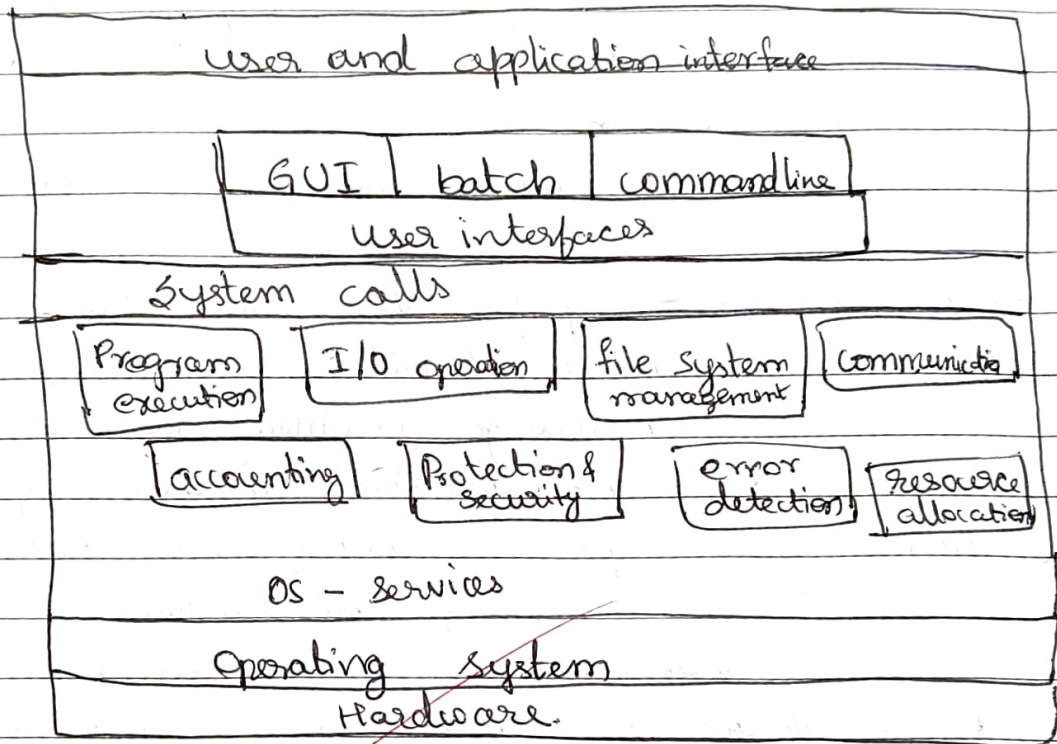 user and application interface
GUI batch commandline
user interfaces
System calls
Program execution
I/O operation
file system management
communicatio
accounting
Protection & security
error detection
resource allocation
OS - services
Operating system
Hardware.